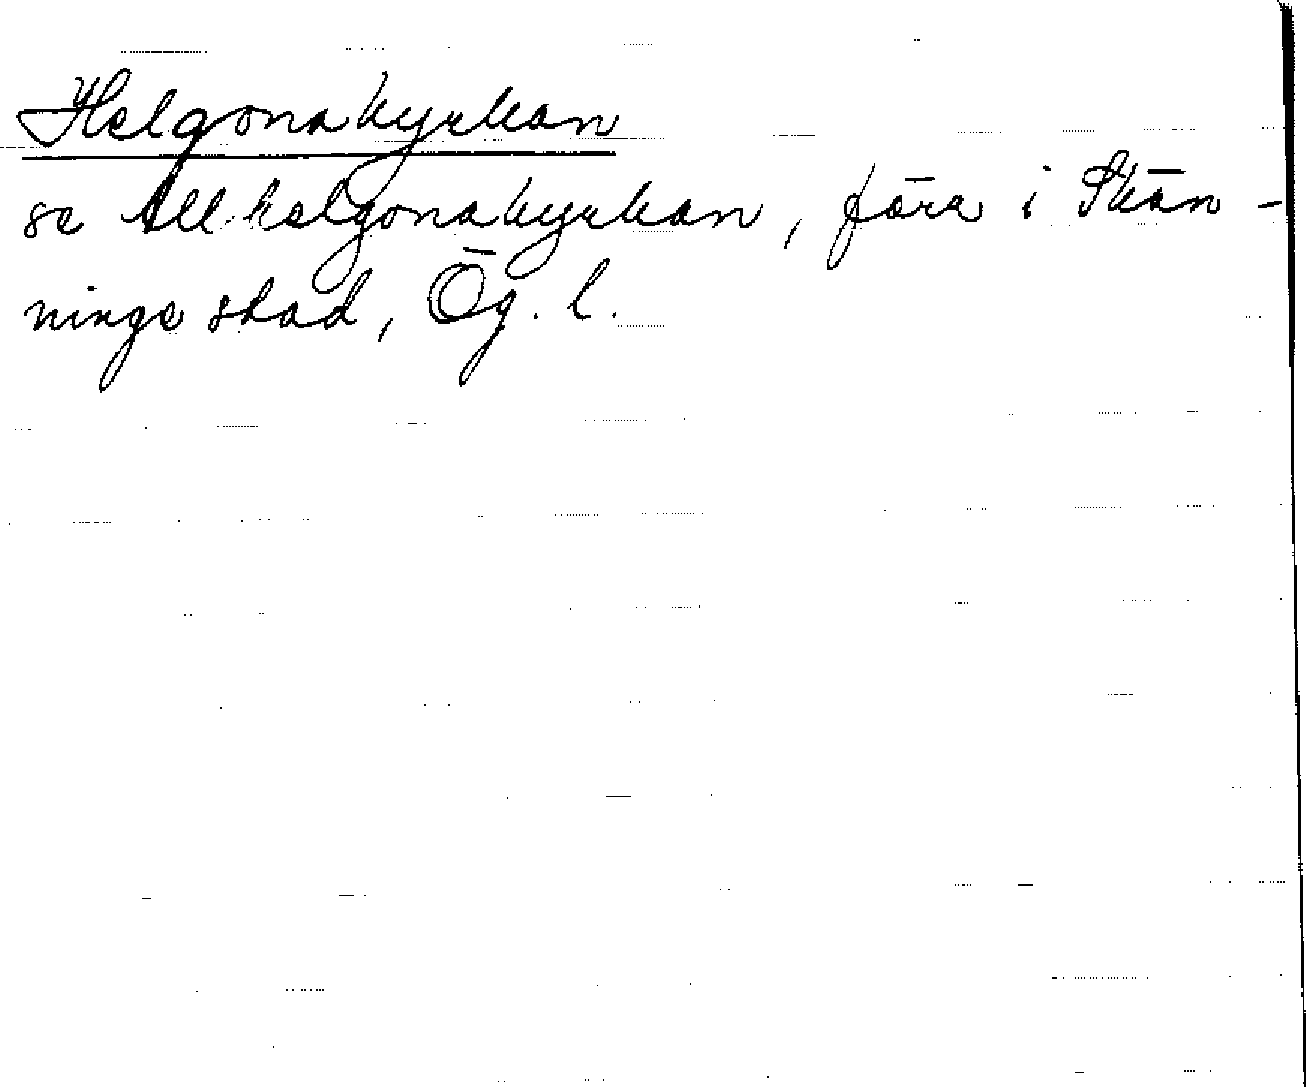 Helgonakyrkan
se Allhelgonakyrkan, förr i Skän-
ninge stad, Ög. l.